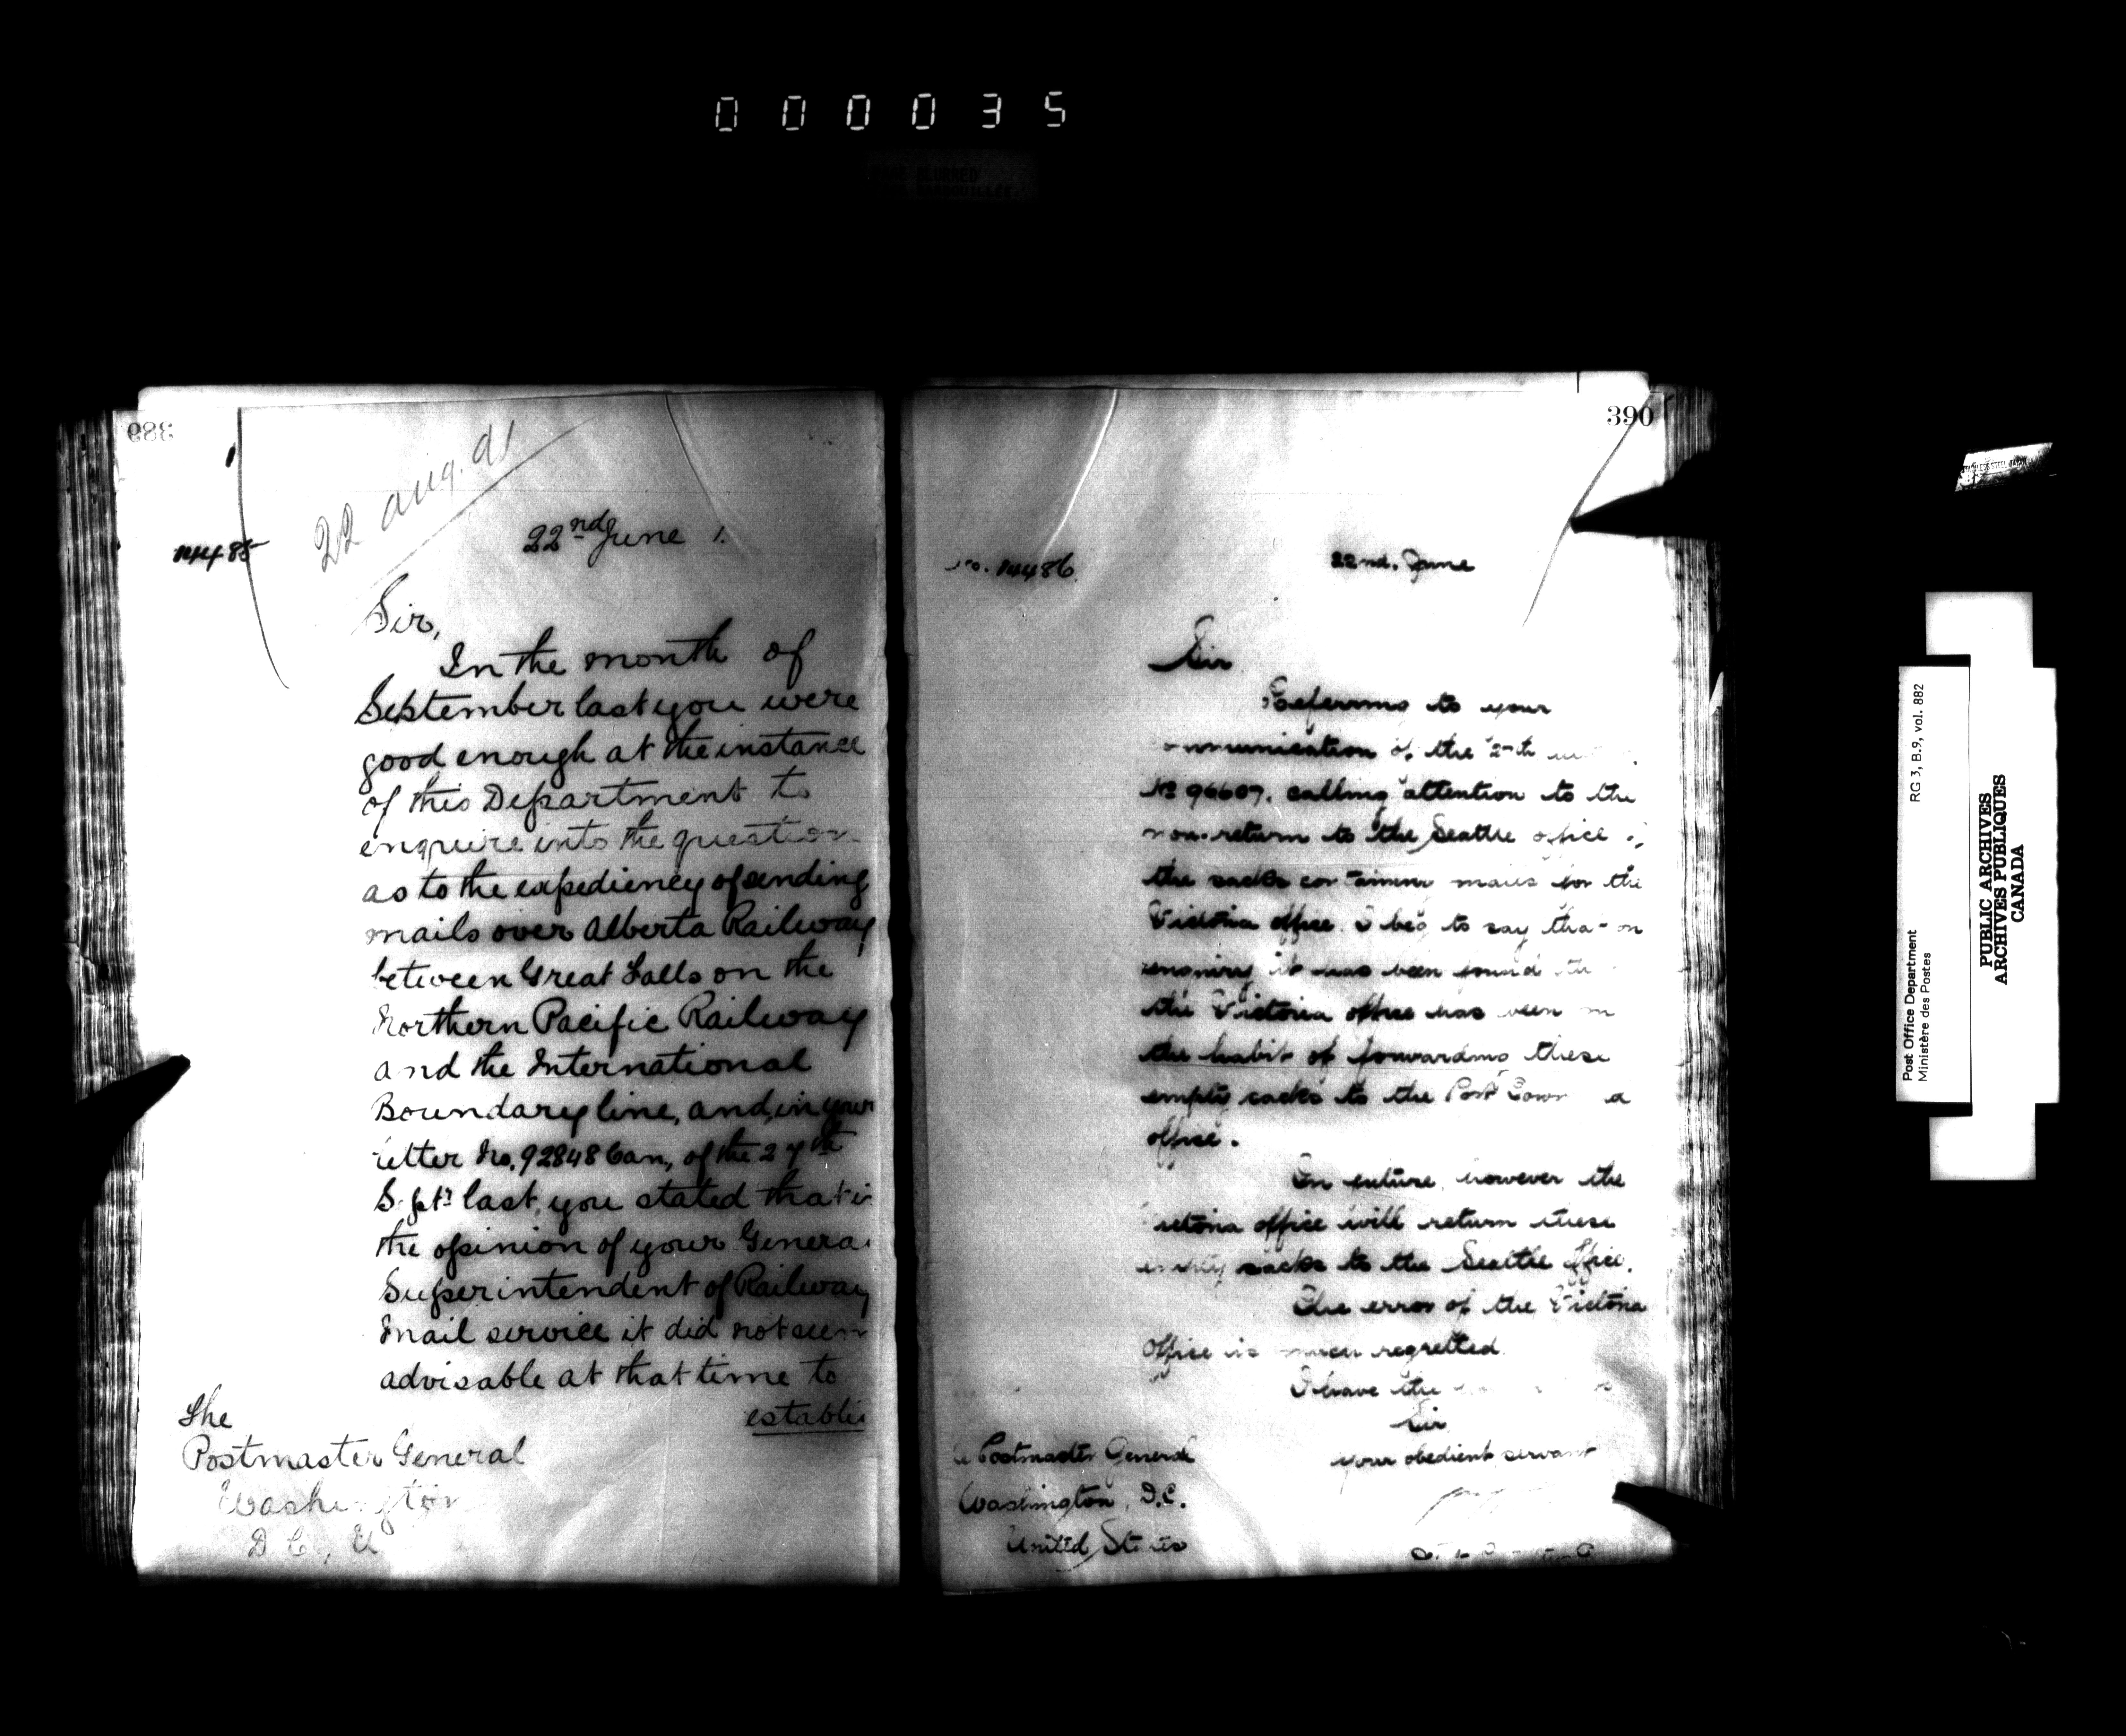 000035
389
22 aug. 91
14485
22nd June 1.
Sir,
In the month of
September last you were
good enough at the instance
of this Department to
enquire into the question
as to the expediency of sending
mails over Alberta Railway
between Great Falls on the
Northern Pacific Railway
and the International
Boundary line, and, in your
letter No. 92848 Can, of the 27th
Sept. last, you stated that in
the opinion of your General
Superintendent of Railway
Mail service it did not seem
advisable at that time to
establis
The
Postmaster General
Washington
D C, U
390
No. 14486
22nd. June
Sir
Referring to your
communication of the
No 96607. calling attention to the
non-return to the Seattle office of
the sacks containing mails for the
Victoria office. I beg to say that on
enquiry it has been found
the Victoria office has been in
the habit of forwarding these
empty sacks to the Port Town
office.
In future, however the
Victoria office will return these
empty sacks to the Seattle Office.
The error of the Victoria
Office is much regretted.
I have the
Sir
your obedient servant
Postmaster General
Washington, D.C.
United States
Post Office Department
Ministère des Postes
RG 3, B.9, vol. 882
PUBLIC ARCHIVES
ARCHIVES PUBLIQUES
CANADA